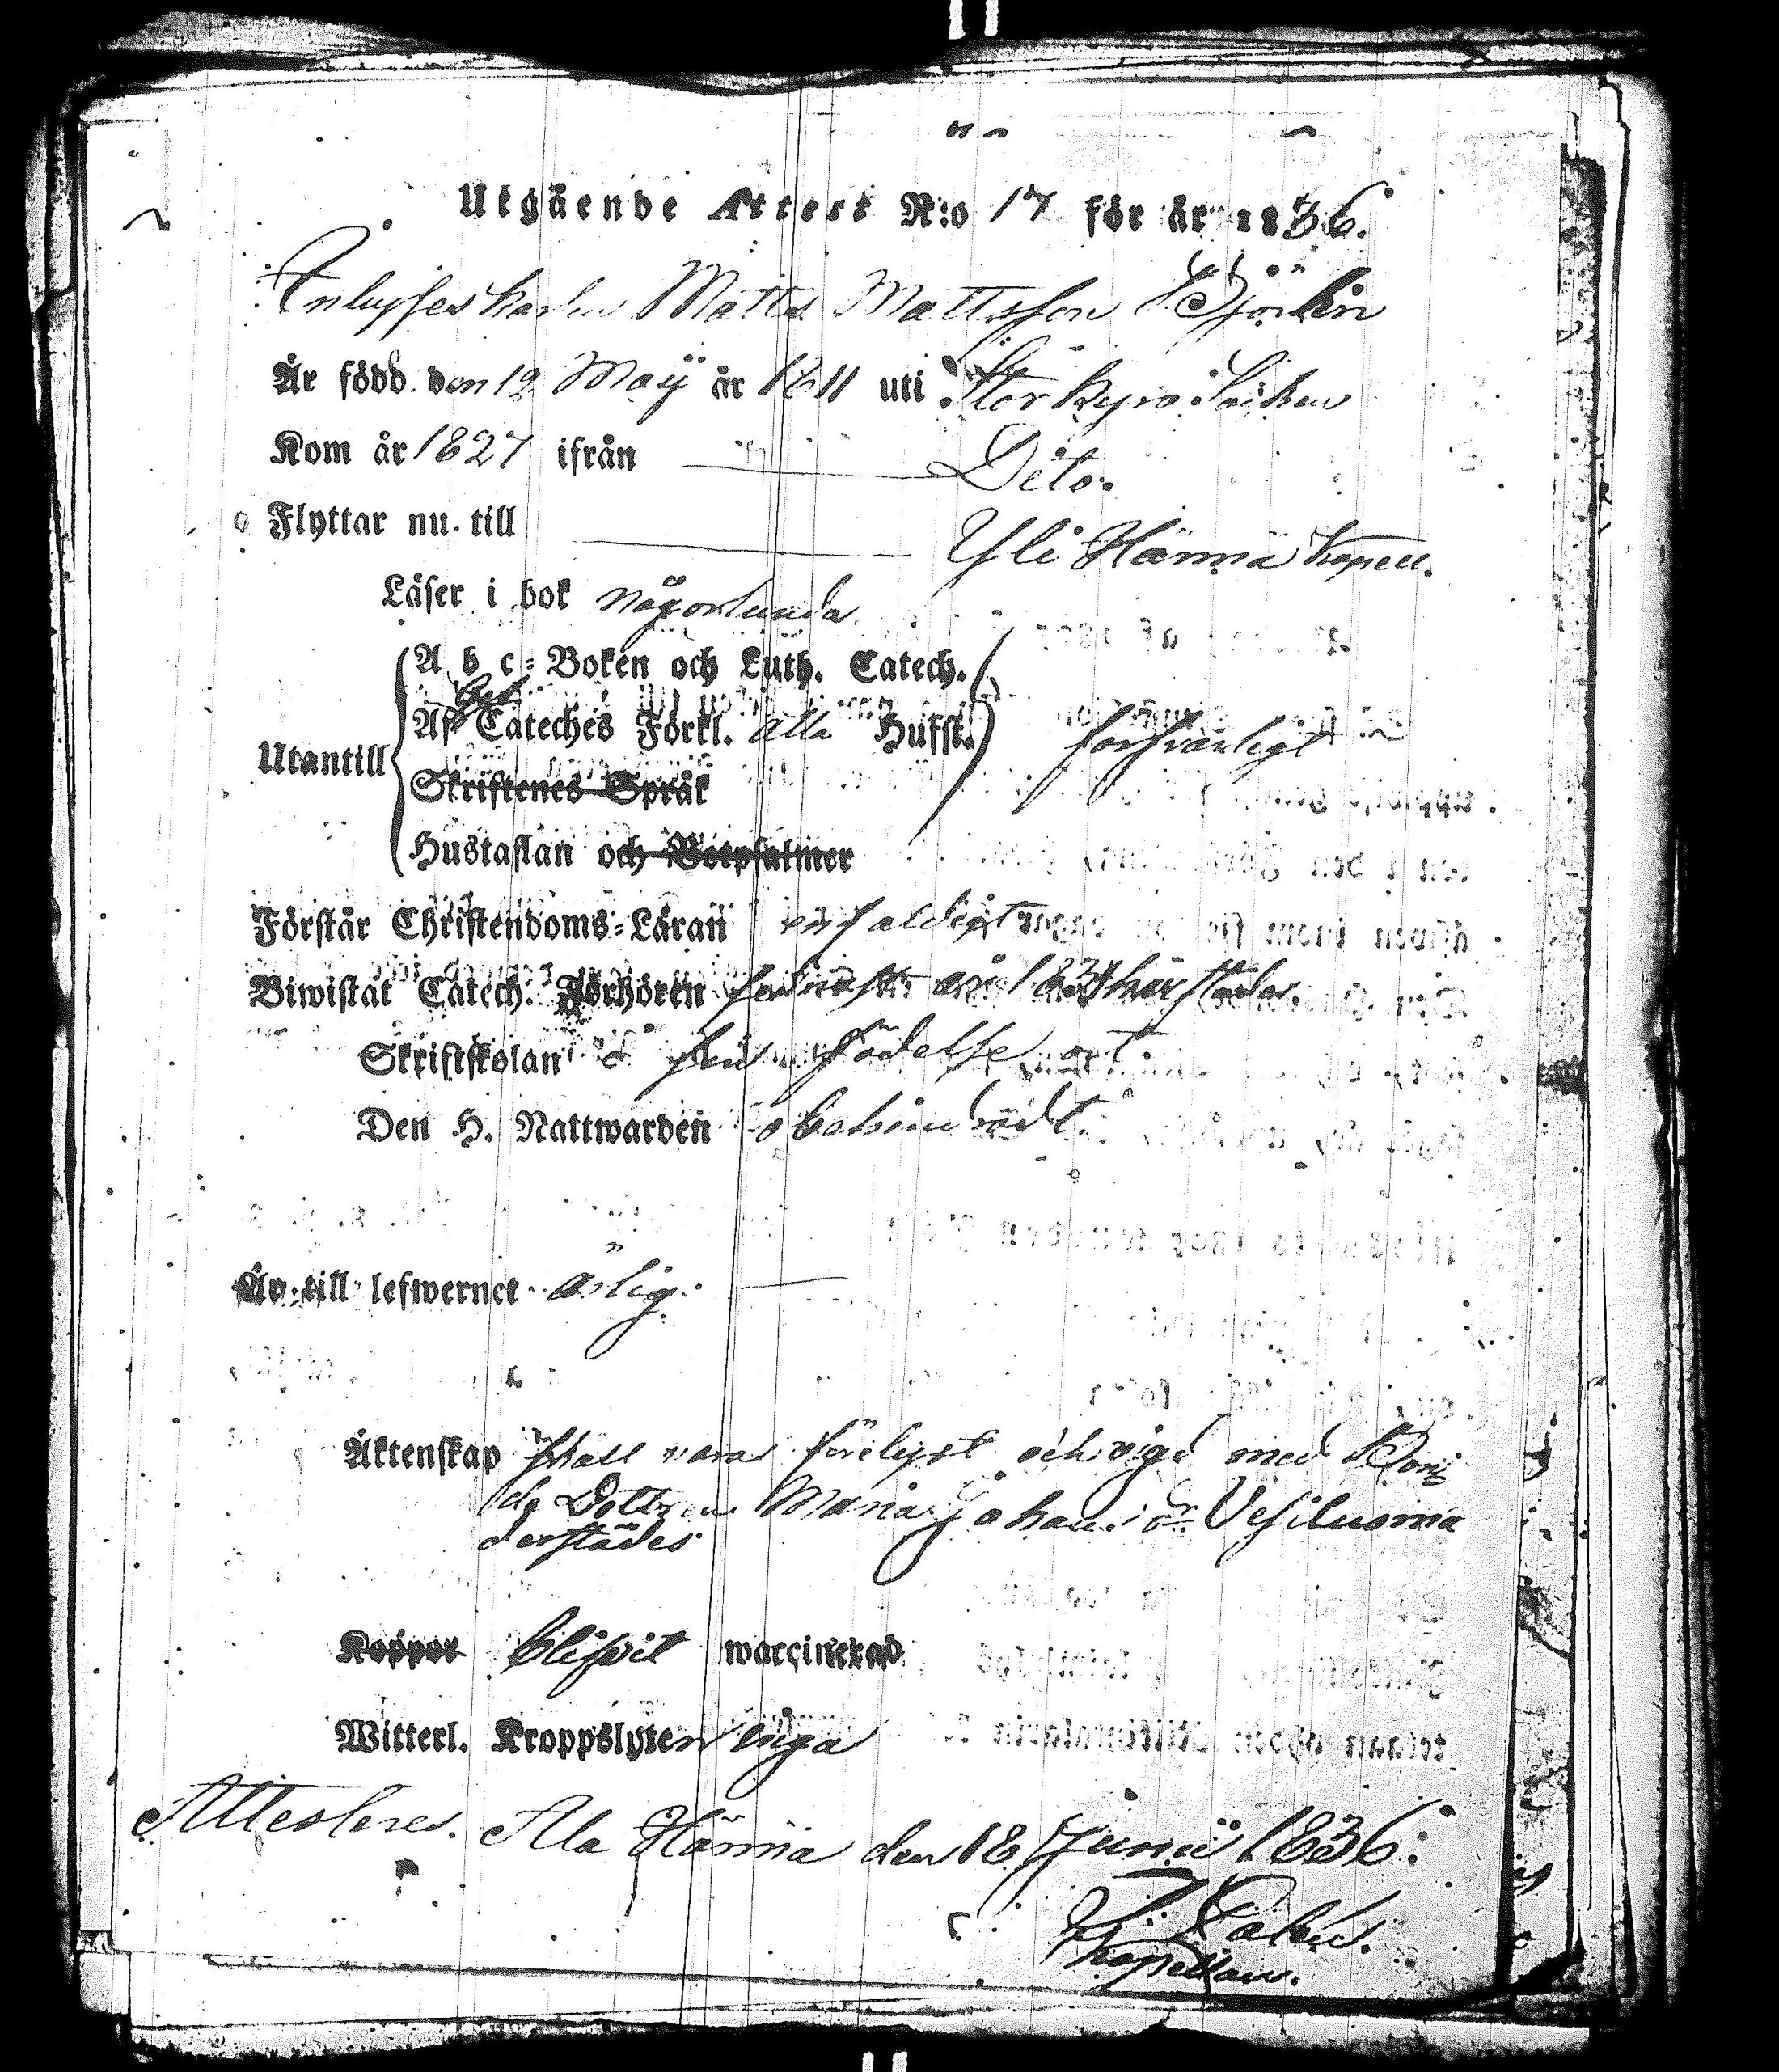 Utgående Attest N:o 17 för år 1836.
Inhyseskarlen Matts Mattsson Björlin
Är född den 19 Maij år 1811 uti Storkyro Socken
Kom år 1827 ifrån Dito.
Flyttar nu till Yli Härmä Kapell.
Läser i bok någorlunda
A b c-Boken och Luth. Catech.
Af Cateches Förkl. alla Hufst. försvarligt
Utantill
Skriftenes Språk
Hustaflan och Botpsalmer
Förstår Christendoms-Läran enfaldigt
Biwistat Catech. Förhören sednast år 1834 härstädes.
Skriftskolan å sin födelse ort.
Den H. Nattwarden obehindradt.
Är till lefwernet ärlig.
Äktenskap skall vara förelyst och vigd med Bon
de Dottren Maria Johansdr Vesiluoma
derstädes
Koppor blifvit waccinerad
Witterl. Kroppslyten inga
Attesteres. Ala Härmä den 18 Junii 1836.
Kapellan.